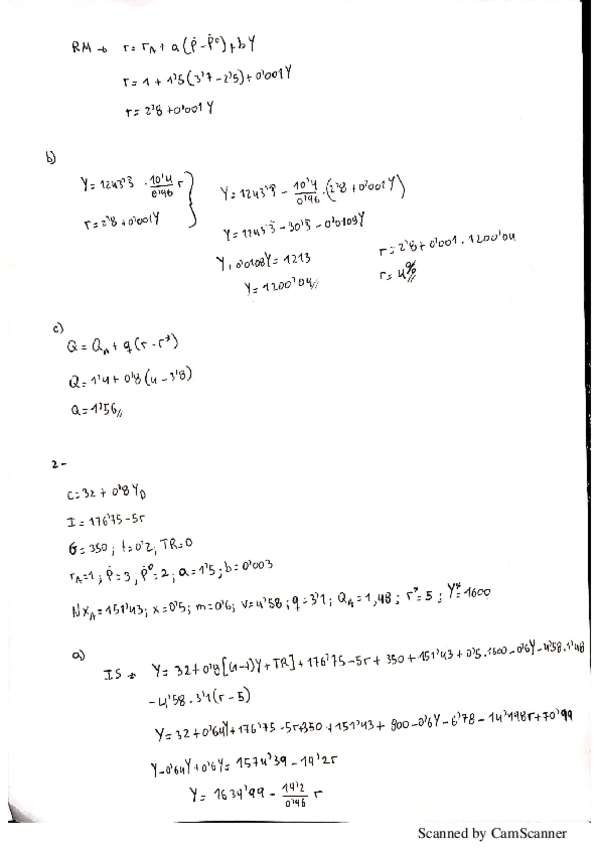 RM → r = r_A + a (ṗ - ṗ⁰) + bY
r = 1 + 1'5 (3'7 - 2'5) + 0'001Y
r = 2'8 + 0'001Y
b)
Y = 1243'3 · 10'4/0'96 r
r = 2'8 + 0'001Y
Y = 1243'3 - 10'4/0'96 · (2'8 + 0'001Y)
Y = 1243'3 - 30'3 - 0'0108Y
Y + 0'0108Y = 1213
Y = 1200'04 //
r = 2'8 + 0'001 · 1200'04
r = 4% //
c)
Q = Q_A + q (r - r*)
Q = 1'4 + 0'8 (4 - 3'8)
Q = 1'56 //
2 -
C = 32 + 0'8 Y_D
I = 176'75 - 5r
G = 350 ; t = 0'2 ; TR = 0
r_A = 1 ; ṗ = 3 ; ṗ⁰ = 2 ; a = 1'5 ; b = 0'003
NX_A = 151'43 ; x = 0'5 ; m = 0'6 ; v = 4'58 ; q = 3'1 ; Q_A = 1,48 ; r* = 5 ; Y* = 1600
a)
IS → Y = 32 + 0'8 [(1-t)Y + TR] + 176'75 - 5r + 350 + 151'43 + 0'5 · 1600 - 0'6Y - 4'58 · 1'48
- 4'58 · 3'1 (r - 5)
Y = 32 + 0'64Y + 176'75 - 5r + 350 + 151'43 + 800 - 0'6Y - 6'78 - 14'198r + 70'99
Y - 0'64Y + 0'6Y = 1574'39 - 19'2r
Y = 1639'99 - 19'2/0'96 r
Scanned by CamScanner